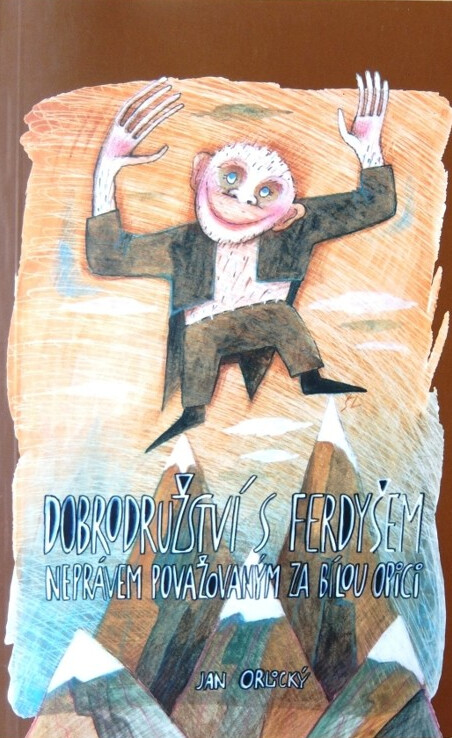 DOBRODRUŽSTVÍ S FERDYŠEM
NEPRÁVEM POVAŽOVANÝM ZA BÍLOU OPICI
JAN ORLICKÝ